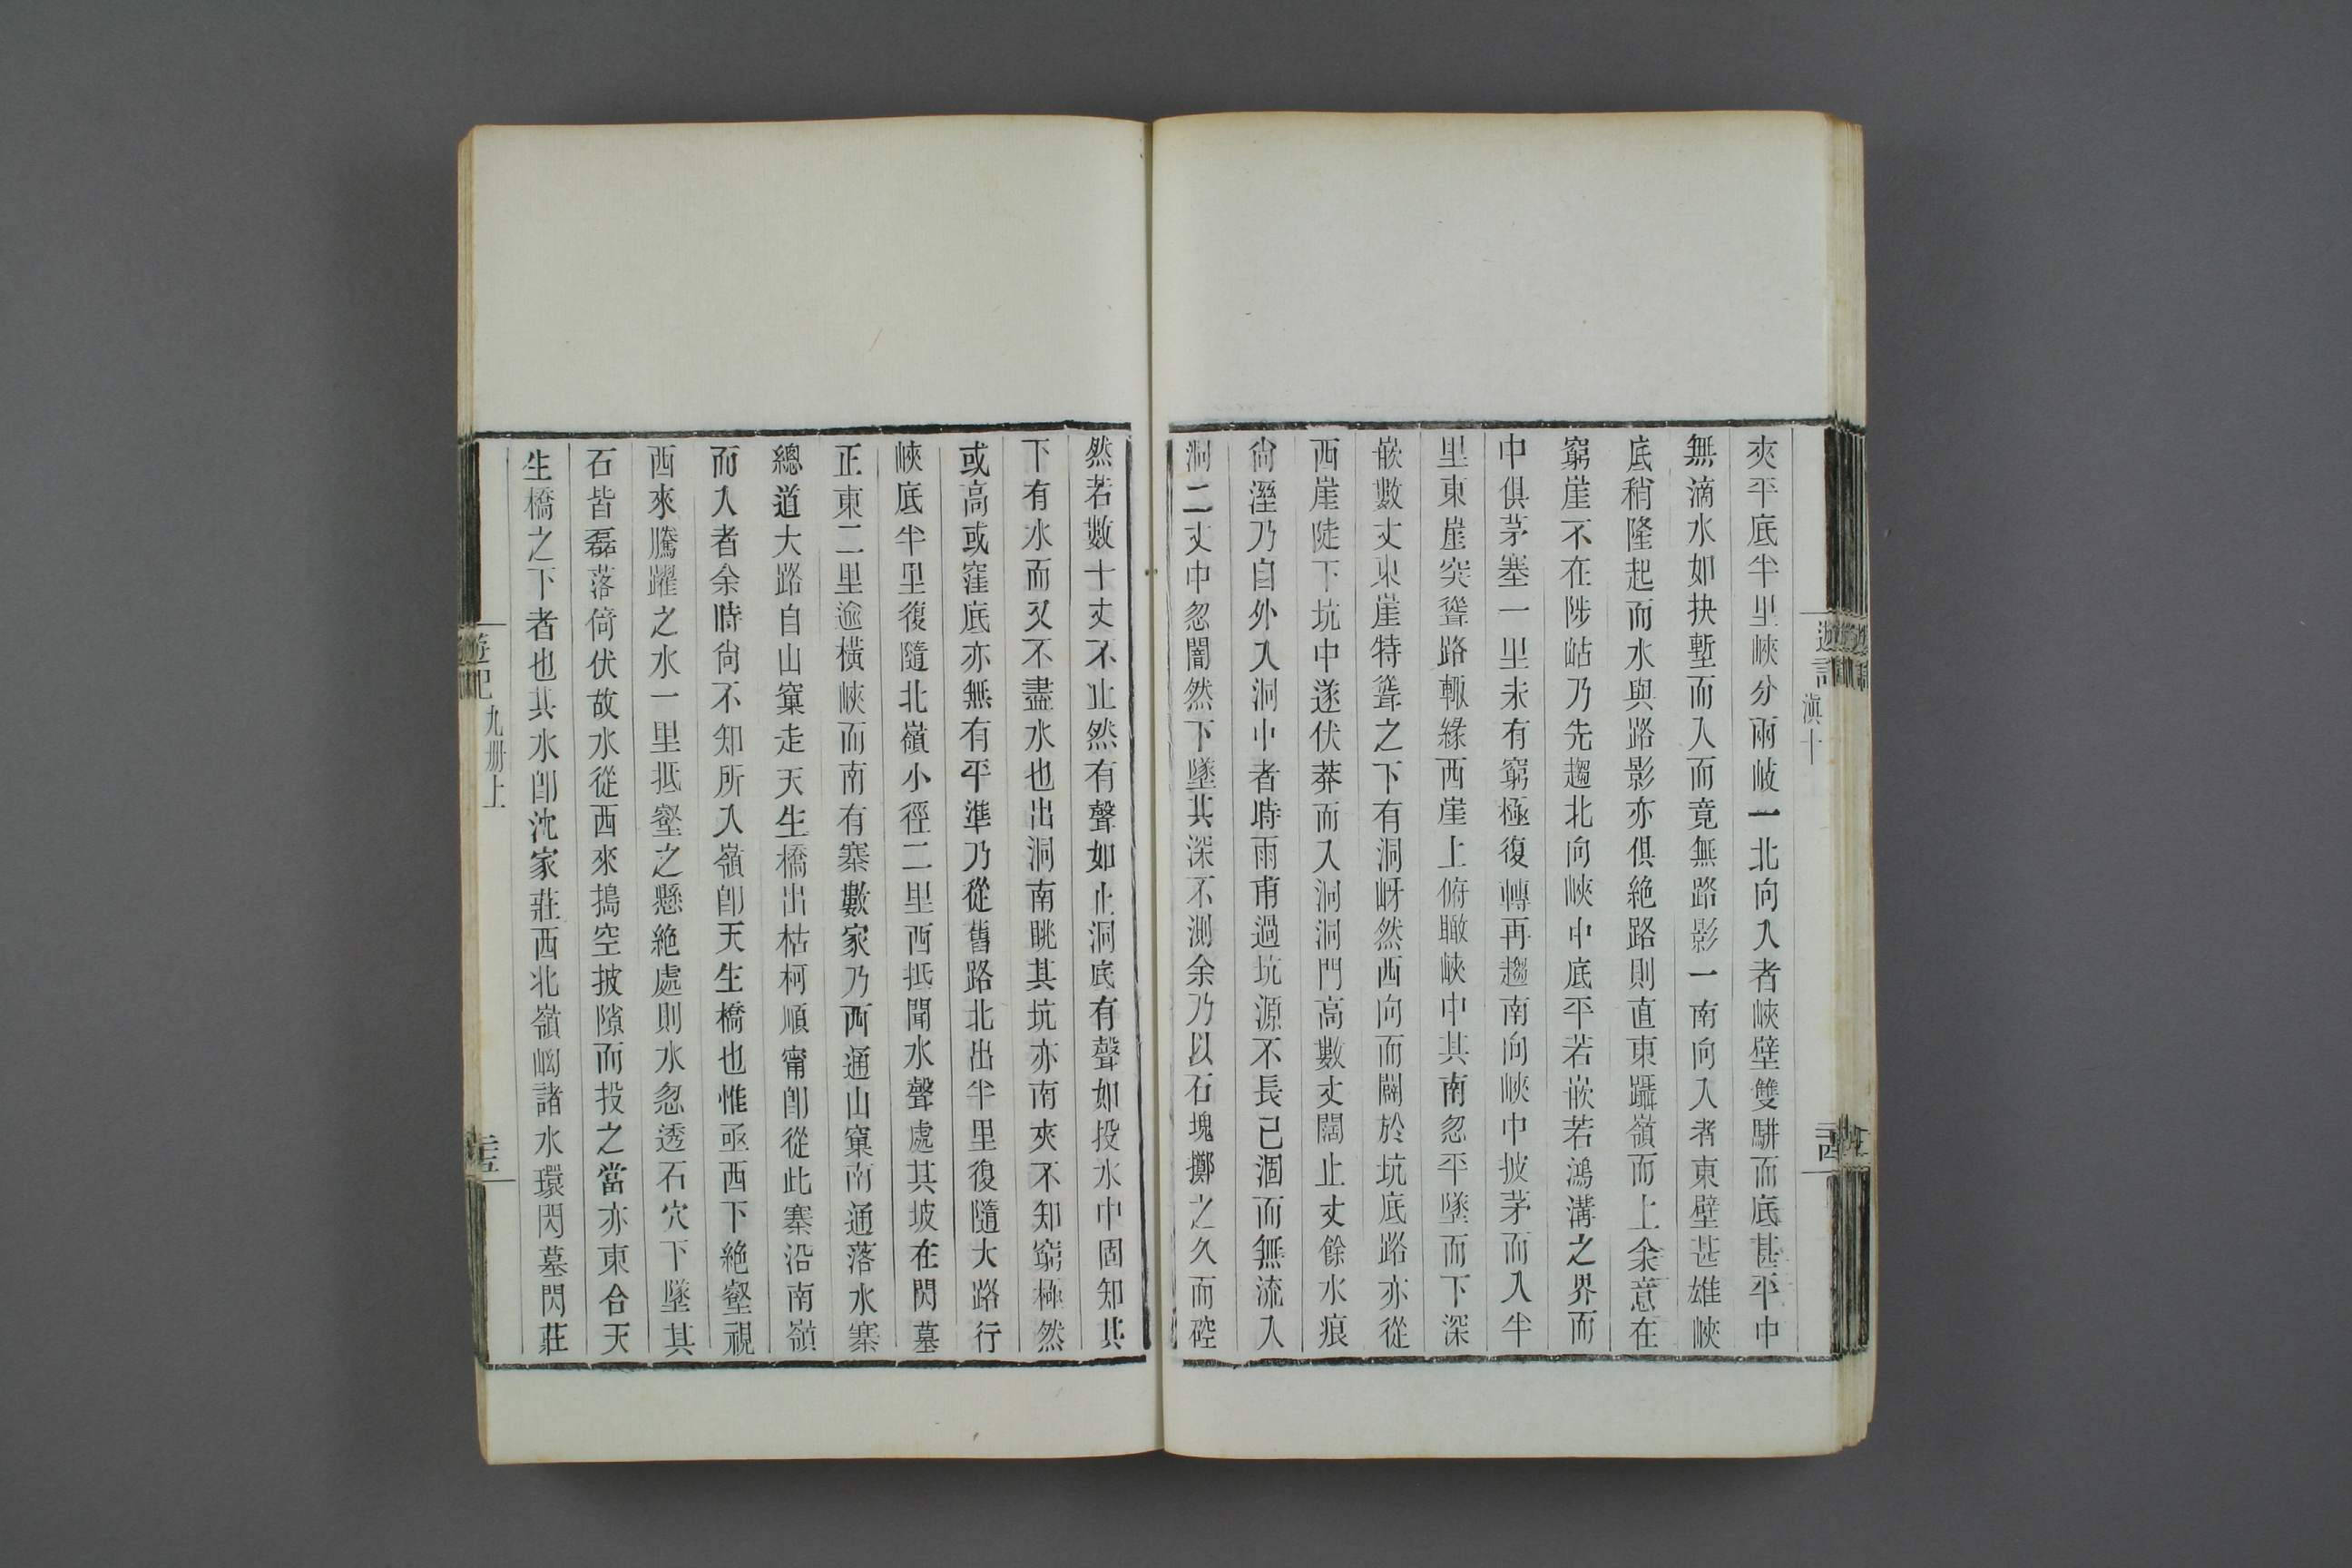 遊記
滇十
夾平底半里峽分兩岐一北向入者峽壁雙騈而底甚平中
無滴水如抉塹而入而竟無路影一南向入者東壁甚雄峽
底稍隆起而水與路影亦俱絶路則直東躡嶺而上余意在
窮崖不在陟岵乃先趨北向峽中底平若嵌若鴻溝之界而
中俱茅塞一里未有窮極復轉再趨南向峽中披茅而入半
里東崖突聳路輒緣西崖上俯瞰峽中其南忽平墜而下深
嵌數丈東崖特聳之下有洞岈然西向而闢於坑底路亦從
西崖陡下坑中遂伏莽而入洞洞門高數丈闊止丈餘水痕
尙溼乃自外入洞中者時雨甫過坑源不長已涸而無流入
洞二丈中忽闇然下墜其深不測余乃以石塊擲之久而硿
然若數十丈不止然有聲如止洞底有聲如投水中固知其
下有水而又不盡水也出洞南眺其坑亦南夾不知窮極然
或高或窪底亦無有平準乃從舊路北出半里復隨大路行
峽底半里復隨北嶺小徑二里西抵聞水聲處其坡在閃墓
正東二里逾橫峽而南有寨數家乃西通山窠南通落水寨
總道大路自山窠走天生橋出枯柯順甯卽從此寨沿南嶺
而入者余時尙不知所入嶺卽天生橋也惟亟西下絶壑視
西來騰躍之水一里抵壑之懸絶處則水忽透石穴下墜其
石皆磊落倚伏故水從西來搗空披隙而投之當亦東合天
生橋之下者也其水卽沈家莊西北嶺㘭諸水環閃墓閃莊
遊記
九册上